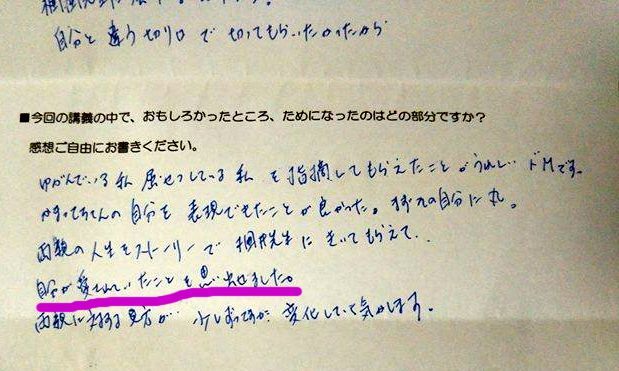 自分と違う切り口で切ってもらいたかったから
■今回の講義の中で、おもしろかったところ、ためになったのはどの部分ですか？
感想ご自由にお書きください。
ゆがんでいる私 屈せつしている私 を指摘してもらえたことがうれしい ドMです。
自分を表現できたことが良かった。 の自分に丸。
両親の人生をストーリーで 先生に きいてもらえて、、
自分が愛されていたことを思い出せました。
両親に対する見方が… 少しずつですが 変化していく気がします。